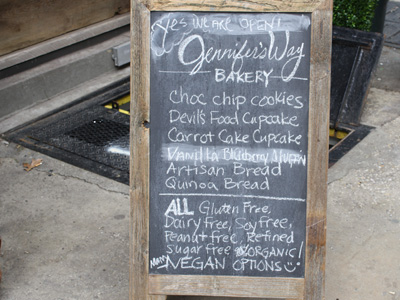 Yes WE ARE OPEN!
Jennifer's Way
BAKERY
choc chip cookies
Devil's Food Cupcake
Carrot Cake Cupcake
Vanilla Blueberry Muffin
Artisan Bread
Quinoa Bread
ALL Gluten Free,
Dairy free, Soy free,
Peanut free, Refined
sugar free & ORGANIC!
Many VEGAN OPTIONS